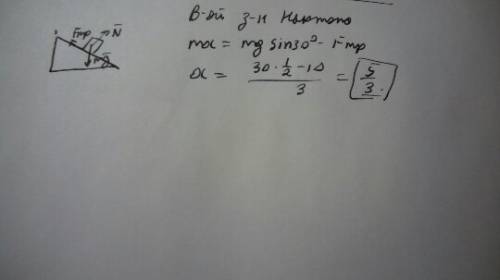 Fтр N̄
mḡ
В-ой з-н Ньютона
ma = mg sin30° - Fтр
a = (30 · 1/2 - 10) / 3 = 5/3